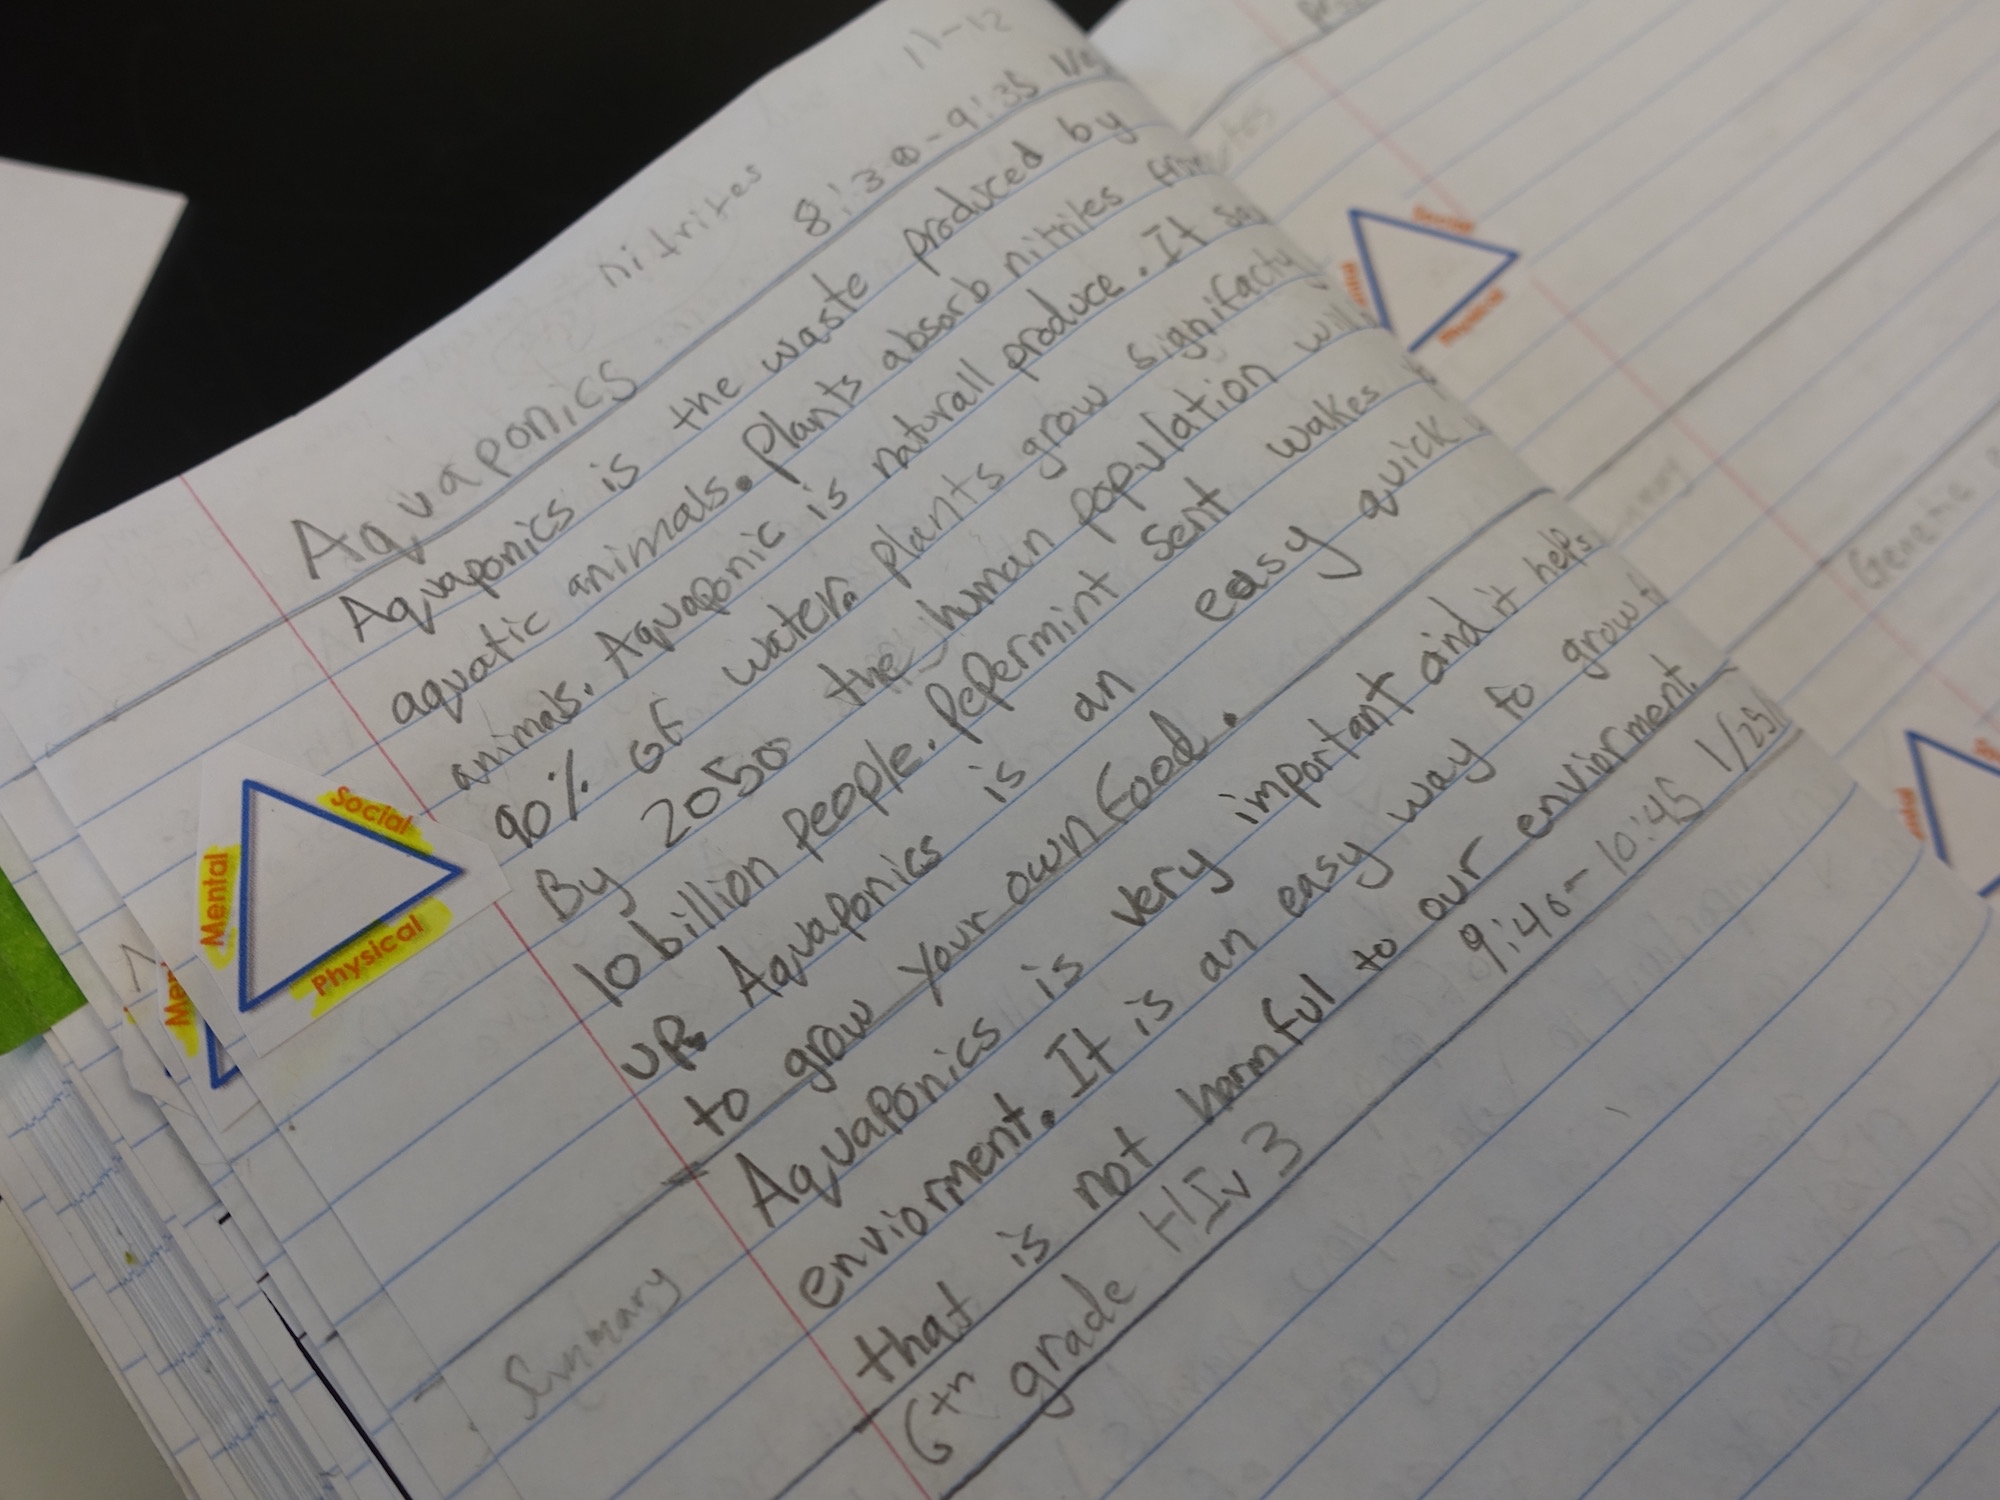 11-12
nitrites
Aquaponics 8:30-9:35
Aquaponics is the waste produced by
aquatic animals. Plants absorb nitriles
animals. Aquaponic is naturall produce. It
90% of water. plants grow signifacty
By 2050 the human population
10 billion people. Pepermint sent wakes
up. Aquaponics is an easy quick
to grow your own food.
Summary
Aquaponics is very important and it helps
enviorment. It is an easy way to grow
that is not harmful to our enviorment.
6th grade HIV 3 9:40-10:45 1/25
Social
Mental
Physical
Social
Physical
Genetic